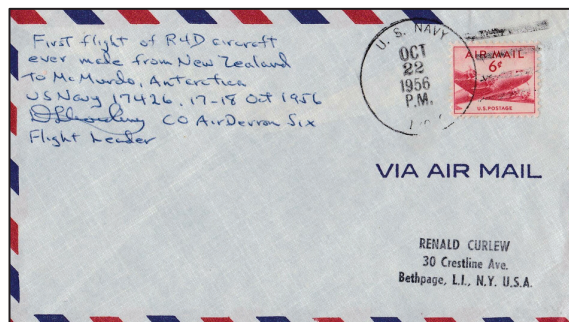 First flight of R4D aircraft
ever made from New Zealand
to McMurdo, Antarctica
US Navy 17426, 17-18 Oct 1956
CO AirDevron Six
Flight Leader
U. S. NAVY
OCT
22
1956
P.M.
AIR MAIL
6¢
U.S. POSTAGE
VIA AIR MAIL
RENALD CURLEW
30 Crestline Ave.
Bethpage, L.I., N.Y. U.S.A.